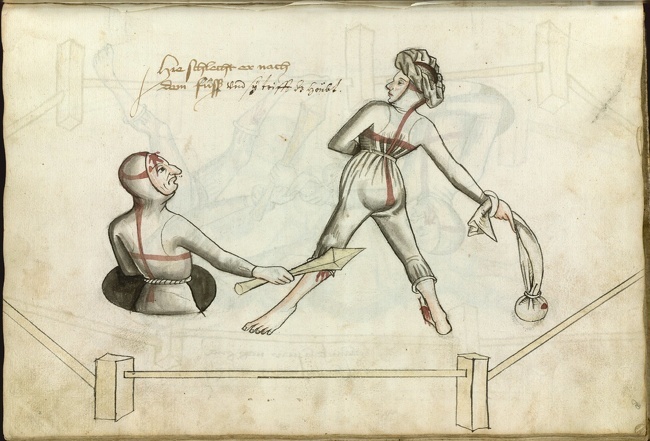 Hie schlecht er nach
dem fuß und sy trifft das houbt.